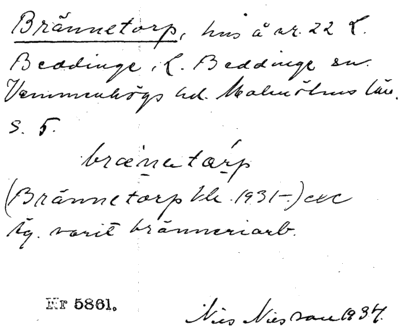 Brännetorp, hus å nr. 22 L.
Beddinge, L. Beddinge sn.
Vemmenhögs hd. Malmöhus län.
S. 5.
bræ̀netǻrp
(Brännetorp blr. 1931-)
äg. varit bränneriarb.
Nr 5861.
Nils Nilsson 1934.